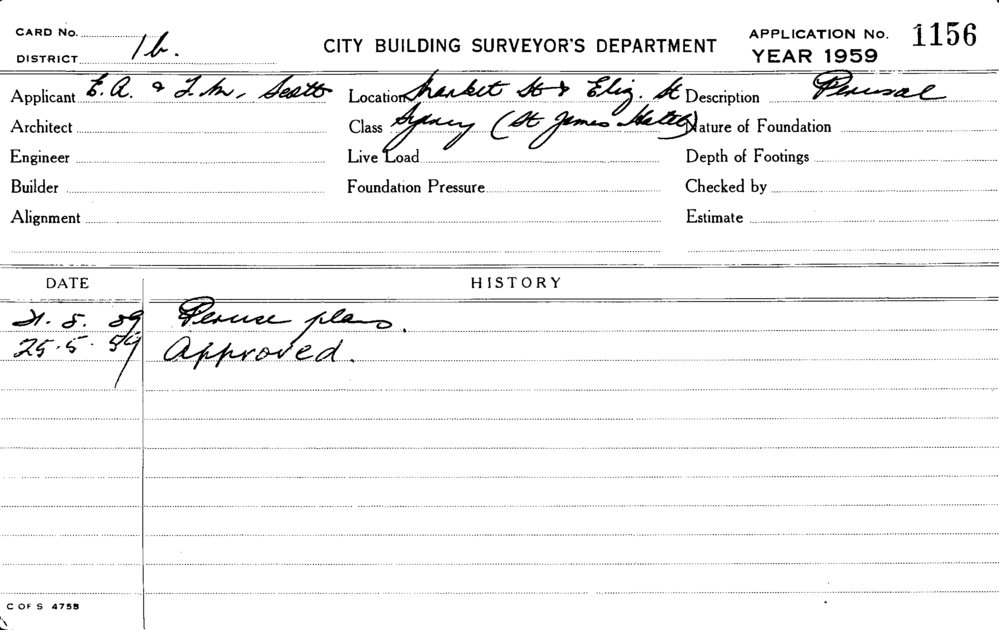 CARD No.
DISTRICT 1b.
CITY BUILDING SURVEYOR'S DEPARTMENT
APPLICATION No. 1156
YEAR 1959
Applicant E. A. & T. M. Scott
Location Market St & Eliz. St
Description Perusal
Architect
Class Sydney (St James Hotel)
Nature of Foundation
Engineer
Live Load
Depth of Footings
Builder
Foundation Pressure
Checked by
Alignment
Estimate
DATE HISTORY
21. 5. 59 Peruse plans.
25. 5. 59 Approved.
C OF S 4755